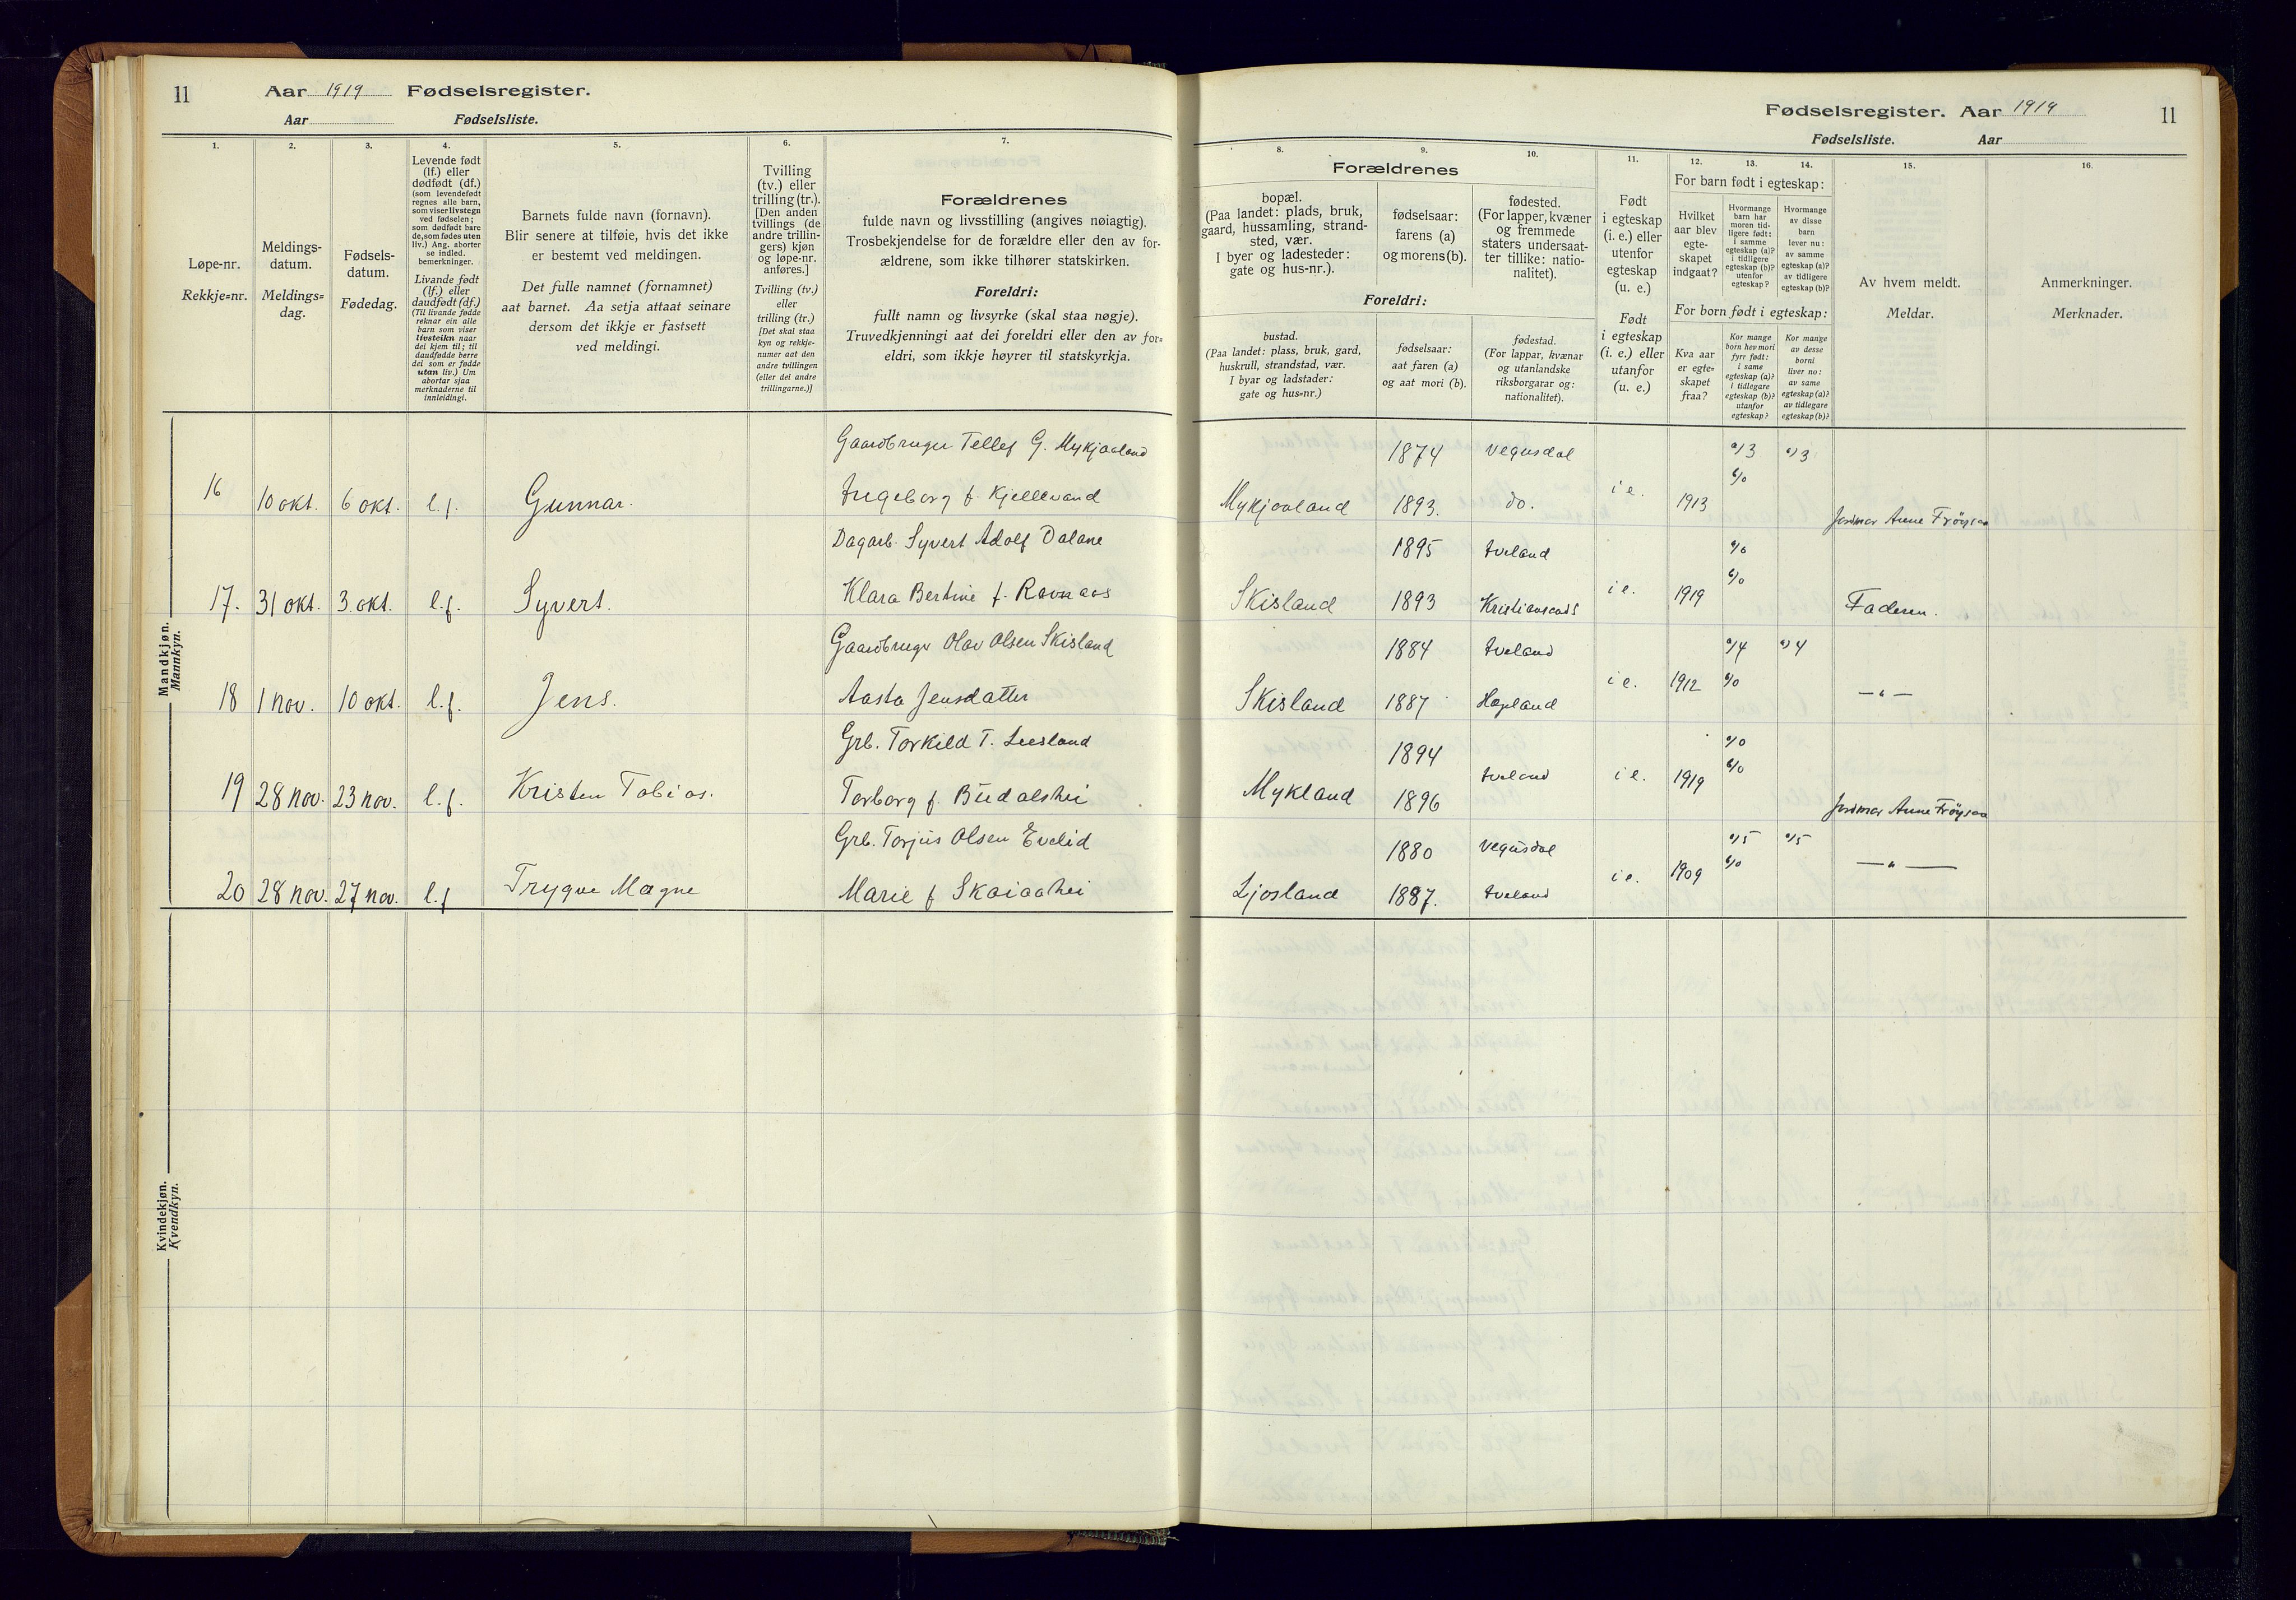 11 Aar 1919 Fødselsregister.
Aar Fødselsliste.
1. 2. 3. 4. 5. 6. 7.
Løpe-nr.
Rekkje=nr.
Meldings-
datum.
Meldings=
dag.
Fødsels-
datum.
Fødedag.
Levende født
(lf.) eller
dødfødt (df.)
(som levendefødt
regnes alle barn,
som viser livstegn
ved fødselen;
som dødfødt bare
de, som fødes uten
liv.) Ang. aborter
se indled.
bemerkninger.
Livande født
(lf.) eller
daudfødt (df.)
(Til livande fødde
reknar ein alle
barn som viser
livsteikn naar
dei kjem til; til
daudfødde berre
dei som er fødde
utan liv.) Um
abortar sjaa
merknaderne til
innleidingi.
Barnets fulde navn (fornavn).
Blir senere at tilføie, hvis det ikke
er bestemt ved meldingen.
Det fulle namnet (fornamnet)
aat barnet. Aa setja attaat seinare
dersom det ikkje er fastsett
ved meldingi.
Tvilling
(tv.) eller
trilling (tr.).
[Den anden
tvillings (de
andre trillin-
gers) kjøn
og løpe-nr.
anføres.]
Tvilling (tv.)
eller
trilling (tr.)
[Det skal staa
kyn og rekkje-
numer aat den
andre tvillingen
(eller dei andre
trillingarne.)]
Forældrenes
fulde navn og livsstilling (angives nøiagtig).
Trosbekjendelse for de forældre eller den av for-
ældrene, som ikke tilhører statskirken.
Foreldri:
fullt namn og livsyrke (skal staa nøgje).
Truvedkjenningi aat dei foreldri eller den av for=
eldri, som ikkje høyrer til statskyrkja.
Mandkjøn.
Mannkyn.
Gaardbruger Tellef G. Mykjaaland
16 10 okt. 6 okt. l.f. Gunnar. Ingeborg f. Kjellevand
Dagarb. Syvert Adolf Dalane
17. 31 okt. 3. okt. l.f. Syvert. Klara Bertine f. Ravnaas
Gaardbruger Olav Olsen Skisland
18 1 nov. 10 okt. l.f. Jens. Aasta Jensdatter
Grb. Torkild T. Liesland
19 28 nov. 23 nov. l.f. Kristen Tobias. Torborg f. Büdalshei
Grb. Torjus Olsen Evelid
20 28 nov. 27 nov. l.f Trygve Magne Marie f Skaiaahei
Kvindekjøn.
Kvendkyn.
Fødselsregister. Aar 1919 11
Fødselsliste. Aar
8. 9. 10. 11. 12. 13. 14. 15. 16.
Forældrenes
bopæl.
(Paa landet: plads, bruk,
gaard, hussamling, strand-
sted, vær.
I byer og ladesteder:
gate og hus-nr.).
fødselsaar:
farens (a)
og morens (b).
fødested.
(For lapper, kvæner
og fremmede
staters undersaat-
ter tillike: natio-
nalitet).
Foreldri:
bustad.
(Paa landet: plass, bruk, gard,
huskrull, strandstad, vær.
I byar og ladstader:
gate og hus=nr.)
fødselsaar:
aat faren (a)
og aat mori (b).
fødestad.
(For lappar, kvænar
og utanlandske
riksborgarar og:
nationalitet).
Født
i egteskap
(i. e.) eller
utenfor
egteskap
(u. e.)
Født
i egteskap
(i. e.) eller
utanfor
(u. e.)
For barn født i egteskap:
Hvilket
aar blev
egte-
skapet
indgaat?
Hvormange
barn har
moren tid-
ligere født:
i samme
egteskap (a)?
i tidligere
egteskap (b)?
utenfor
egteskap?
Hvormange
av disse
barn
lever nu:
av samme
egteskap (a)?
av tidligere
egteskap (b)?
For born født i egteskap:
Kva aar
er egte=
skapet
fraa?
Kor mange
born hev mori
fyrr født:
i same
egteskap (a)?
i tidlegare
egteskap (b)?
utanfor
egteskap?
Kor mange
av desse
borni
liver no:
av same
egteskap (a)?
av tidlegare
egteskap (b)?
Av hvem meldt.
Meldar.
Anmerkninger.
Merknader.
1874 Vegusdal a/3 a/3
b/0
Mykjaaland 1893. do. i e. 1913 Jordmor Anne Frøysaa
1895 Iveland a/0
Skisland 1893 Kristianssands i e. 1919 b/0 Faderen.
1884 Iveland a/4 a/4
Skisland 1887 Hægeland i e. 1912 b/0 — " —
1894 a/0
Mykland 1896 Iveland i e. 1919 b/0 Jordmor Anne Frøysaa
1880 Vegusdal a/5 a/5
Ljosland 1887. Iveland i e. 1909 b/0 — " —